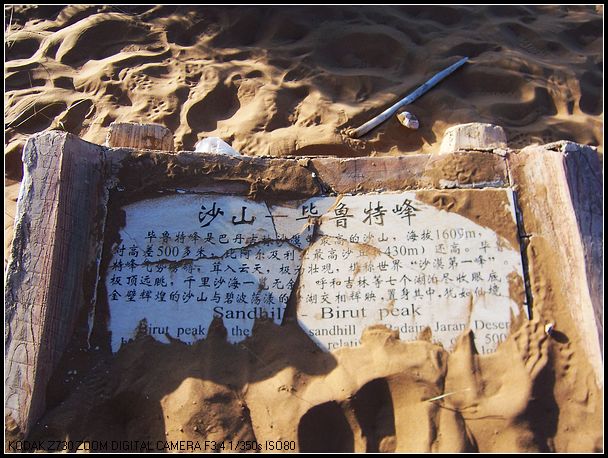 沙山－毕鲁特峰
毕鲁特峰是巴丹吉林沙漠 最高的沙山，海拔1609m，
对高差500多米，比阿尔及利 最高沙丘 430m）还高。毕鲁
特峰气势 ，耸入云天，极 壮观，堪称世界“沙漠第一峰”。
极顶远眺，千里沙海一览无余，呼和吉林等七个湖泊尽收眼底，
金壁辉煌的沙山与碧波荡漾的 湖交相辉映，置身其中，犹如仙境。
Sandhill - Birut peak
Birut peak the sandhill Badain Jaran Desert
relati
500
KODAK Z730 ZOOM DIGITAL CAMERA F3.4 1/350s ISO80